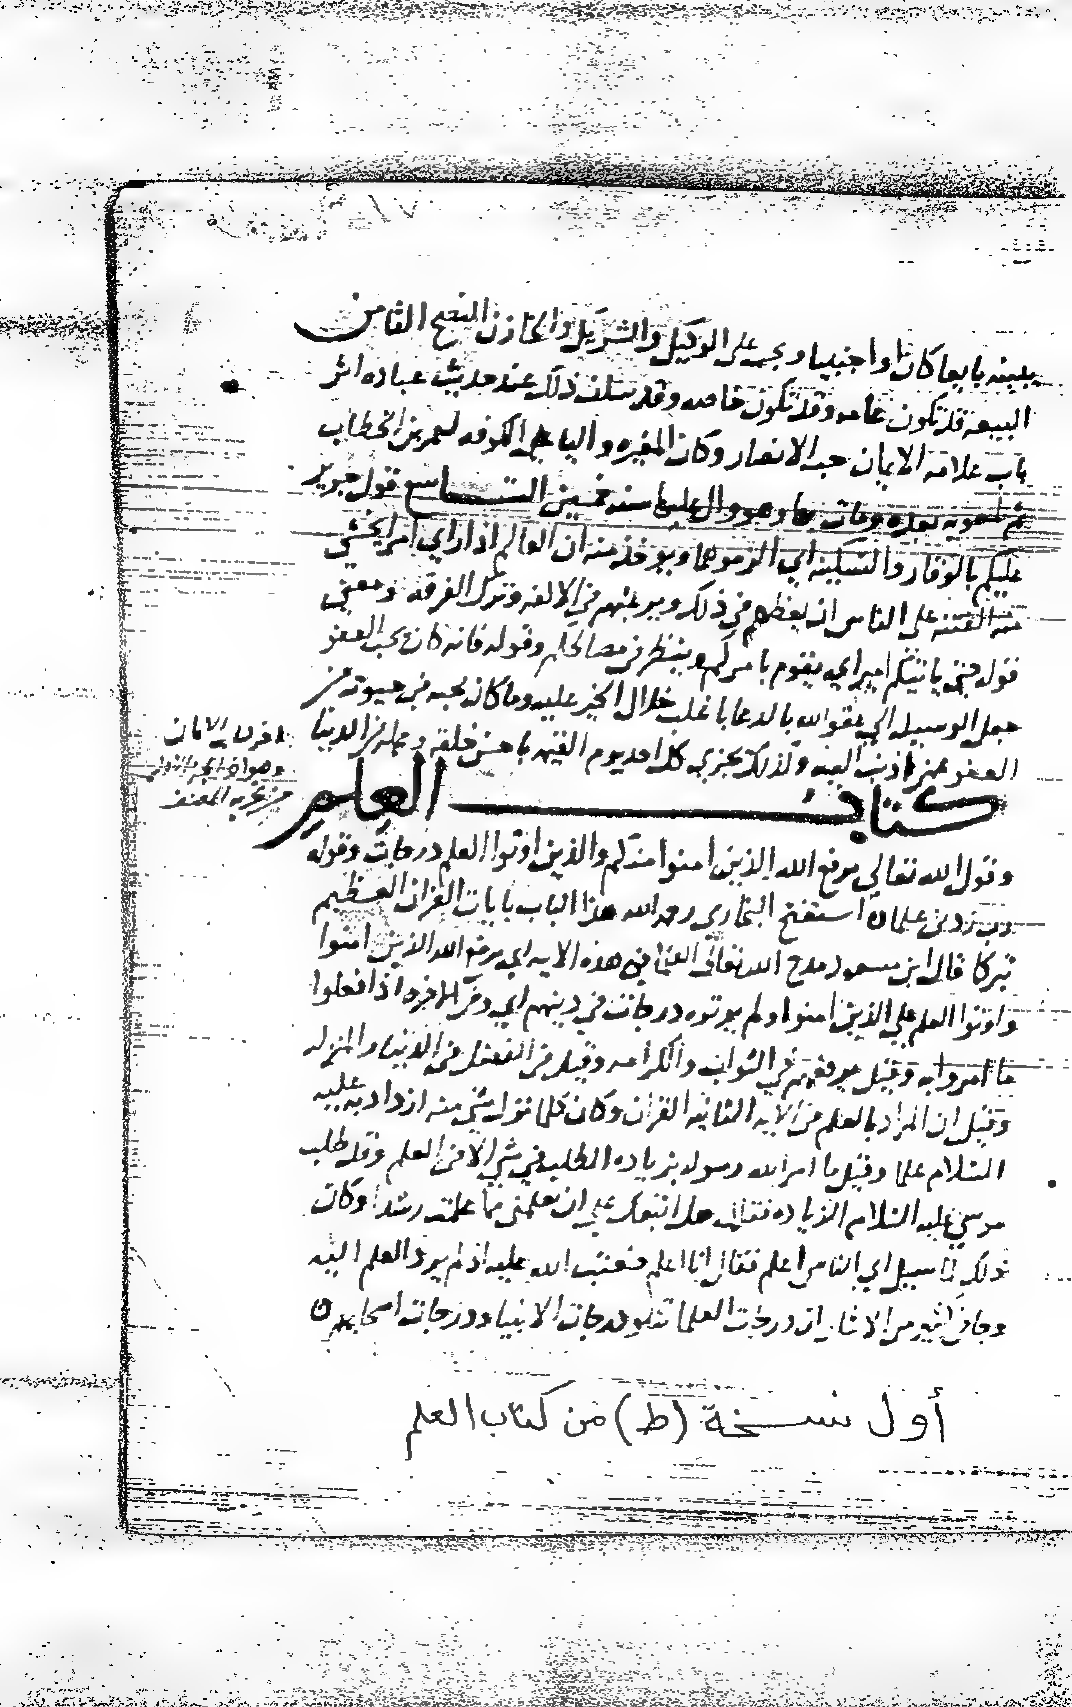 بيبينه بايعا كان او اجنبيا ويجب على الوكيل والشريك والخازن النصح الثامن
البيعه قد تكون عامه وقد تكون خاصه وقد سلف ذلك عند حديث عباده اثر
باب علامه الايمان حب الانصار وكان المغيره واليا على الكوفه لعمر بن الخطاب
ثم لمعويه بعده ومات بها وهو وال عليها سنه خمسين التاسع قول جرير
عليكم بالوقار والسكينه اي الزموهما ويوخذ منه ان العالم اذا راي امرا يخشي
منه الفتنه على الناس ان يعظهم في ذلك ويرغبهم في الالفه وترك الفرقه ومعنى
قوله حتى ياتيكم امير اي يقوم بامركم وينظر في مصالحكم وقوله فانه كان يحب العفو
جعل الوسيله الى عفو الله بالدعا باغلب خلال الخير عليه وما كان يحبه في حيوته من
العفو عمن اذنب اليه وكذلك يجزي كل احد يوم القيمه باحسن خلقه وعمله في الدنيا
اخر الايمان
كتاب العلم
وقول الله تعالي يرفع الله الذين امنوا منكم والذين اوتوا العلم درجات وقوله
رب زدني علما ه استفتح البخاري رحمه الله هذا الباب بايات القران العظيم
تبركا قال ابن مسعود مدح الله تعالى العلما في هذه الايه اي يرفع الله الذين امنوا
واوتوا العلم علي الذين امنوا ولم يوتوه درجات في دينهم اي وفي الاخره اذا فعلوا
ما امروا به وقيل يرفعهم في الثواب والكرامه وقيل في الفضل في الدنيا والمنزله
وقيل ان المراد بالعلم في الايه الثانيه القران وكان كلما نزل شي منه ازداد به عليه
السلام علما وقيل ما امر الله رسوله بزياده الطلب في شي الا في العلم وقد طلب
موسي عليه السلام الزياده فقال هل اتبعك علي ان تعلمني مما علمت رشدا وكان
ذلك لما سيل اي الناس اعلم فقال انا اعلم فعتب الله عليه اذ لم يرد العلم اليه
وجا في اثار ان درجات العلما تتلو درجات الانبيا ودرجات اصحابهم ه
أول نسخة (ط) من كتاب العلم